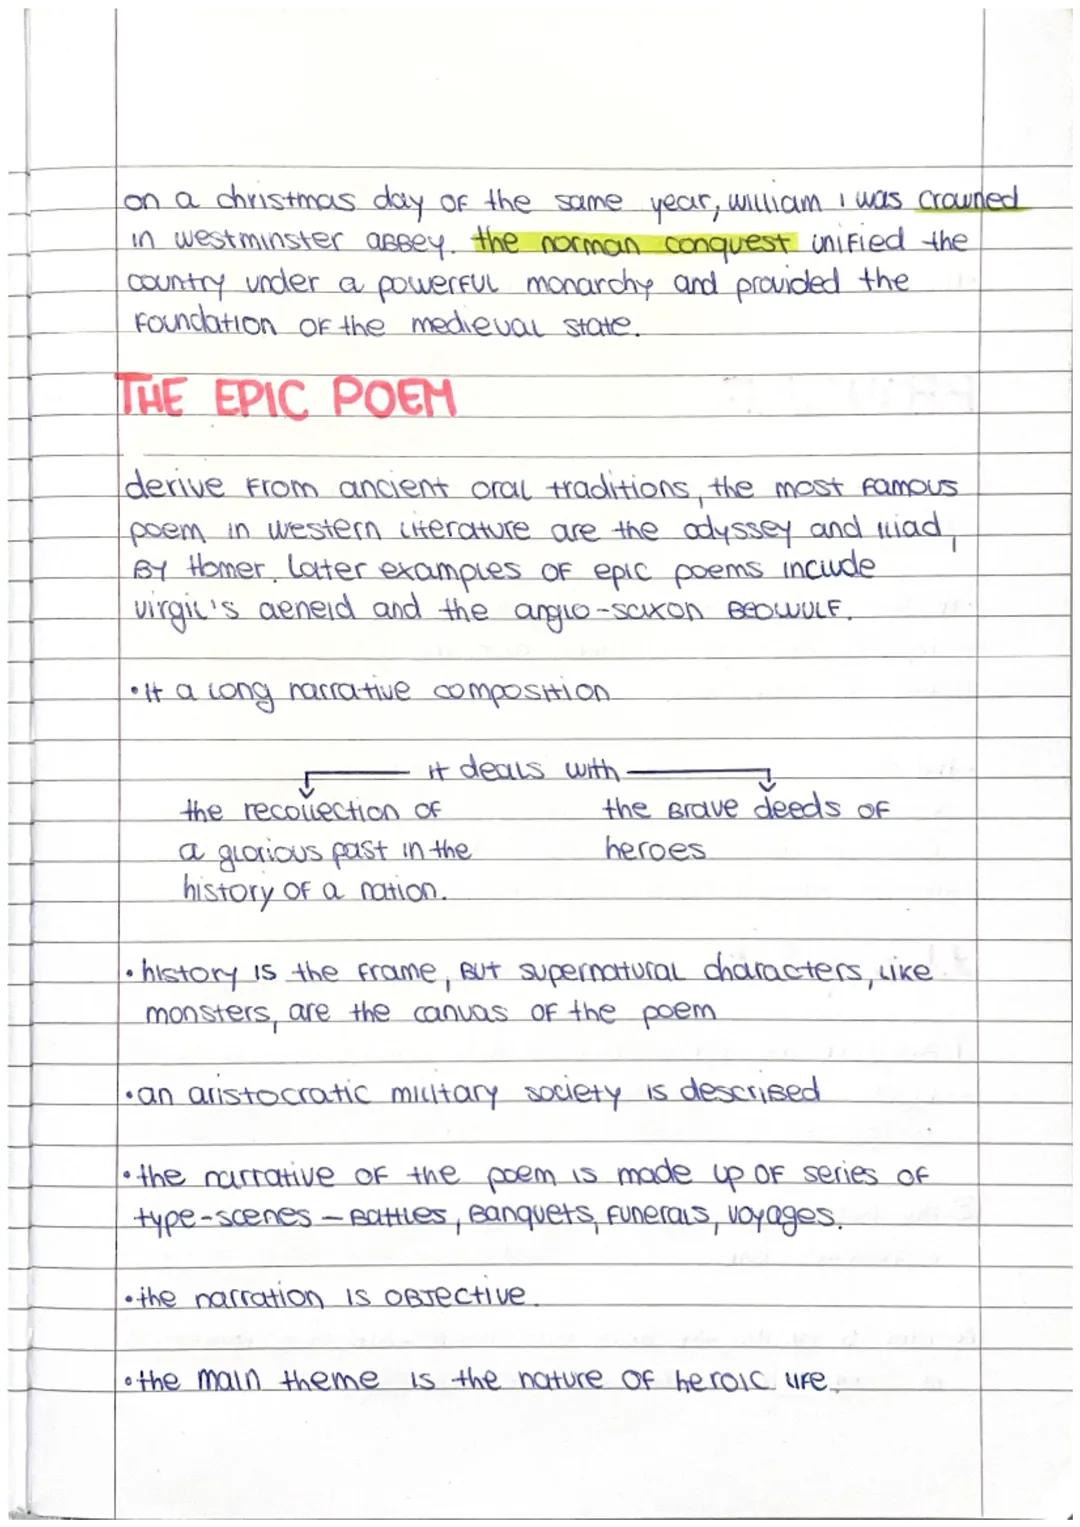 on a christmas day of the same year, william I was crowned
in westminster abbey. the norman conquest unified the
country under a powerful monarchy and provided the
foundation of the medieval state.
THE EPIC POEM
derive from ancient oral traditions, the most famous
poem in western literature are the odyssey and iliad,
By Homer. Later examples of epic poems include
virgil's aeneid and the anglo-saxon BEOWULF.
•it a long narrative composition
it deals with
the recollection of
a glorious past in the
history of a nation.
the brave deeds of
heroes
•history is the frame, but supernatural characters, like
monsters, are the canvas of the poem
•an aristocratic military society is described
•the narrative of the poem is made up of series of
type-scenes – Battles, Banquets, funerals, voyages.
•the narration is objective.
•the main theme is the nature of heroic life.